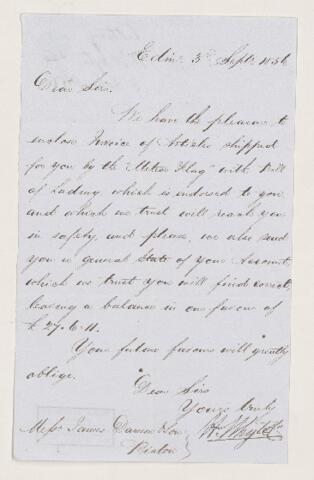 Edinr. 3rd Septr. 1856
Dear Sirs.
We have the pleasure to
enclose Invoice of Articles shipped
for you by the "Meteor Flag" with Bill
of Lading which is endorsed to you,
and which we trust will reach you
in safety and please, we also send
you a general State of your Account
which we trust you will find correct,
leaving a balance in our favour of
£ 27. 6. 11.
Your future favours will greatly
oblige.
Dear Sirs
Yours truly
Messrs. James & Son